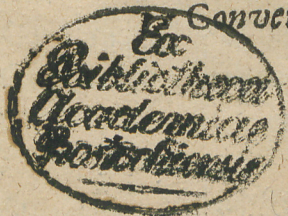 Conve
Ex
Bibliotheca
Academiae
Rostochiensis